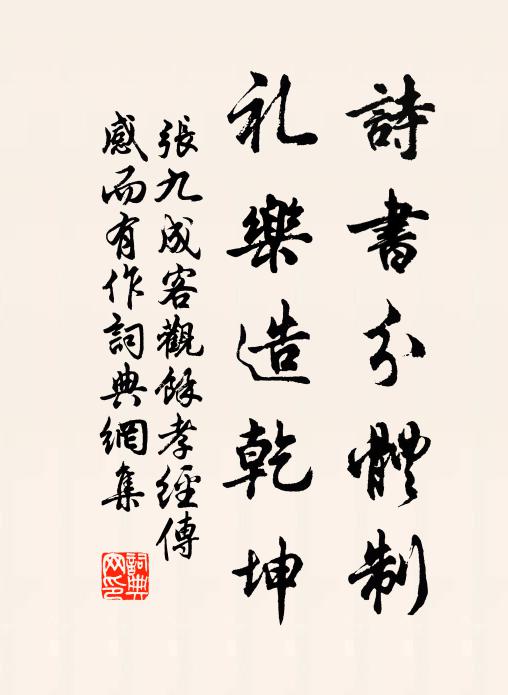 詩書分體制
礼樂造乾坤
張九成客觀餘孝經傳
感而有作詞典網集
詞典网印